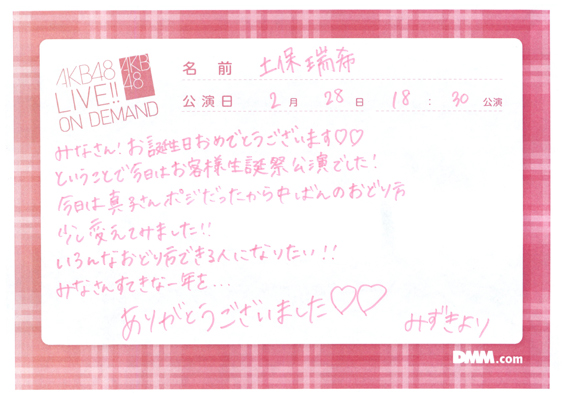 AKB48
LIVE!!
ON DEMAND
AKB
48
名前 土保瑞希
公演日 2月 28日 18:30 公演
みなさん!お誕生日おめでとうございます♡♡
ということで今日はお客様生誕祭公演でした!
今日は真子さんポジだったから中ばんのおどり方
少し変えてみました!!
いろんなおどり方できる人になりたい!!
みなさんすてきな一年を...
ありがとうございました♡♡
みずきより
DMM.com